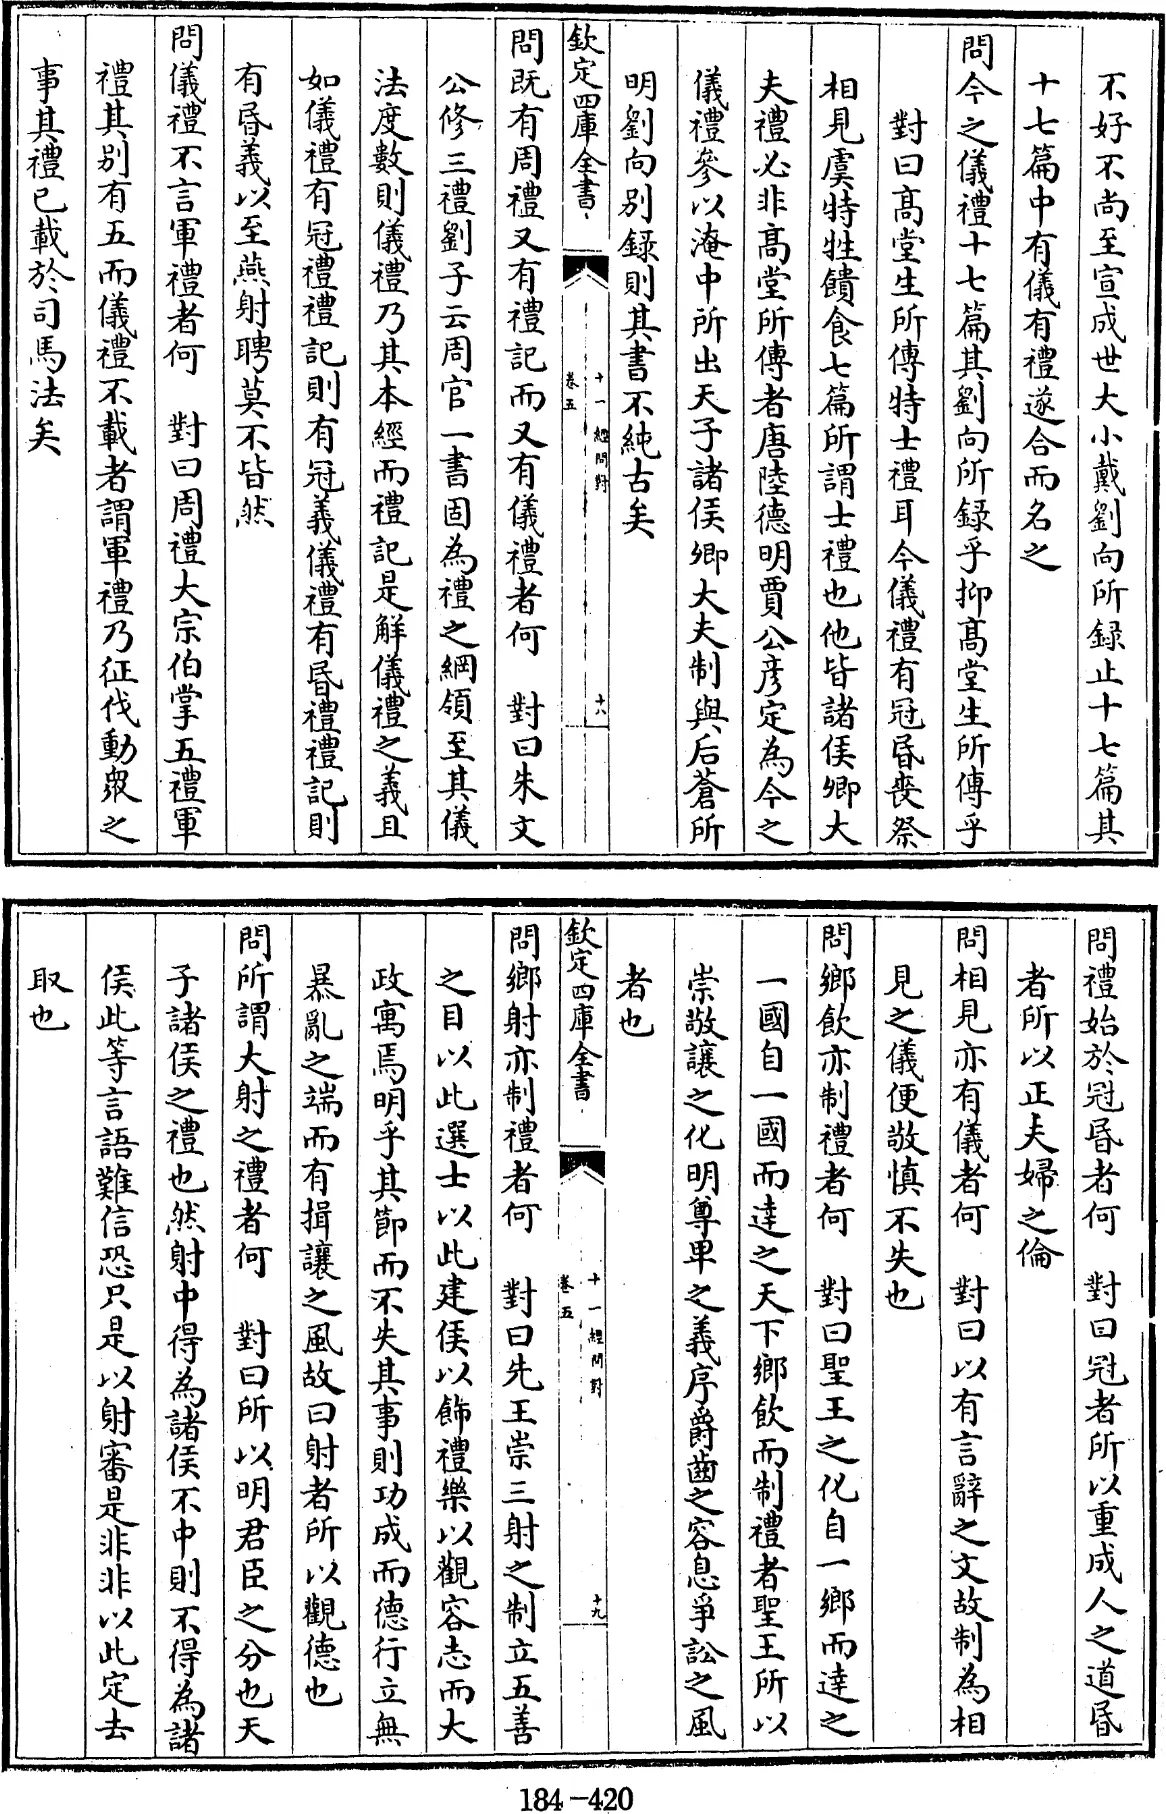 不好不尚至宣成世大小戴劉向所録止十七篇其
十七篇中有儀有禮遂合而名之
問今之儀禮十七篇其劉向所録乎抑髙堂生所傳乎
對曰髙堂生所傳特士禮耳今儀禮有冠昏喪祭
相見虞特牲饋食七篇所謂士禮也他皆諸侯卿大
夫禮必非髙堂所傳者唐陸德明賈公彦定為今之
儀禮參以淹中所出天子諸侯卿大夫制與后蒼所
明劉向别録則其書不純古矣
欽定四庫全書
十一經問對
卷五
十八
問既有周禮又有禮記而又有儀禮者何 對曰朱文
公修三禮劉子云周官一書固為禮之綱領至其儀
法度數則儀禮乃其本經而禮記是解儀禮之義且
如儀禮有冠禮禮記則有冠義儀禮有昏禮禮記則
有昏義以至燕射聘莫不皆然
問儀禮不言軍禮者何 對曰周禮大宗伯掌五禮軍
禮其别有五而儀禮不載者謂軍禮乃征伐動衆之
事其禮已載於司馬法矣
問禮始於冠昏者何 對曰冠者所以重成人之道昏
者所以正夫婦之倫
問相見亦有儀者何 對曰以有言辭之文故制為相
見之儀便敬慎不失也
問鄉飲亦制禮者何 對曰聖王之化自一鄉而達之
一國自一國而達之天下鄉飲而制禮者聖王所以
崇敬讓之化明尊卑之義序爵齒之容息爭訟之風
者也
欽定四庫全書
十一經問對
卷五
十九
問鄉射亦制禮者何 對曰先王崇三射之制立五善
之目以此選士以此建侯以飾禮樂以觀容志而大
政寓焉明乎其節而不失其事則功成而德行立無
暴亂之端而有揖讓之風故曰射者所以觀德也
問所謂大射之禮者何 對曰所以明君臣之分也天
子諸侯之禮也然射中得為諸侯不中則不得為諸
侯此等言語難信恐只是以射審是非非以此定去
取也
184-420